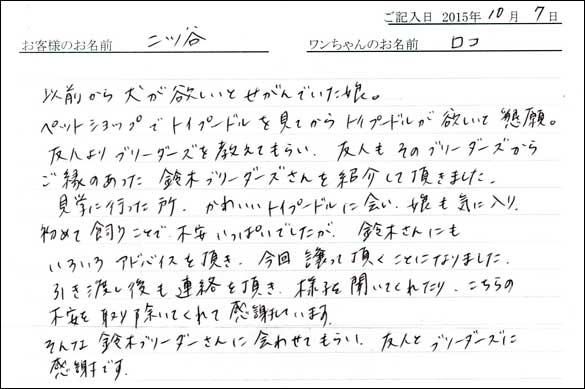 ご記入日 2015年 10月 7日
お客様のお名前 二ッ谷 ワンちゃんのお名前 ロコ
以前から犬が欲しいとせがんでいた娘。
ペットショップでトイプードルを見てからトイプードルが欲しいて懇願。
友人よりブリーダーズを教えてもらい、友人もそのブリーダーズから
ご縁のあった鈴木ブリーダーズさんを紹介して頂きました。
見学に行った所、かわいいトイプードルに会い、娘も気に入り、
初めて飼うことで不安いっぱいでしたが、鈴木さんにも
いろいろアドバイスを頂き、今回譲って頂くことになりました。
引き渡し後も連絡を頂き、様子を聞いてくれたり、こちらの
不安を取り除いてくれて感謝しています。
そんな鈴木ブリーダーさんに会わせてもらい、友人とブリーダーズに
感謝です。